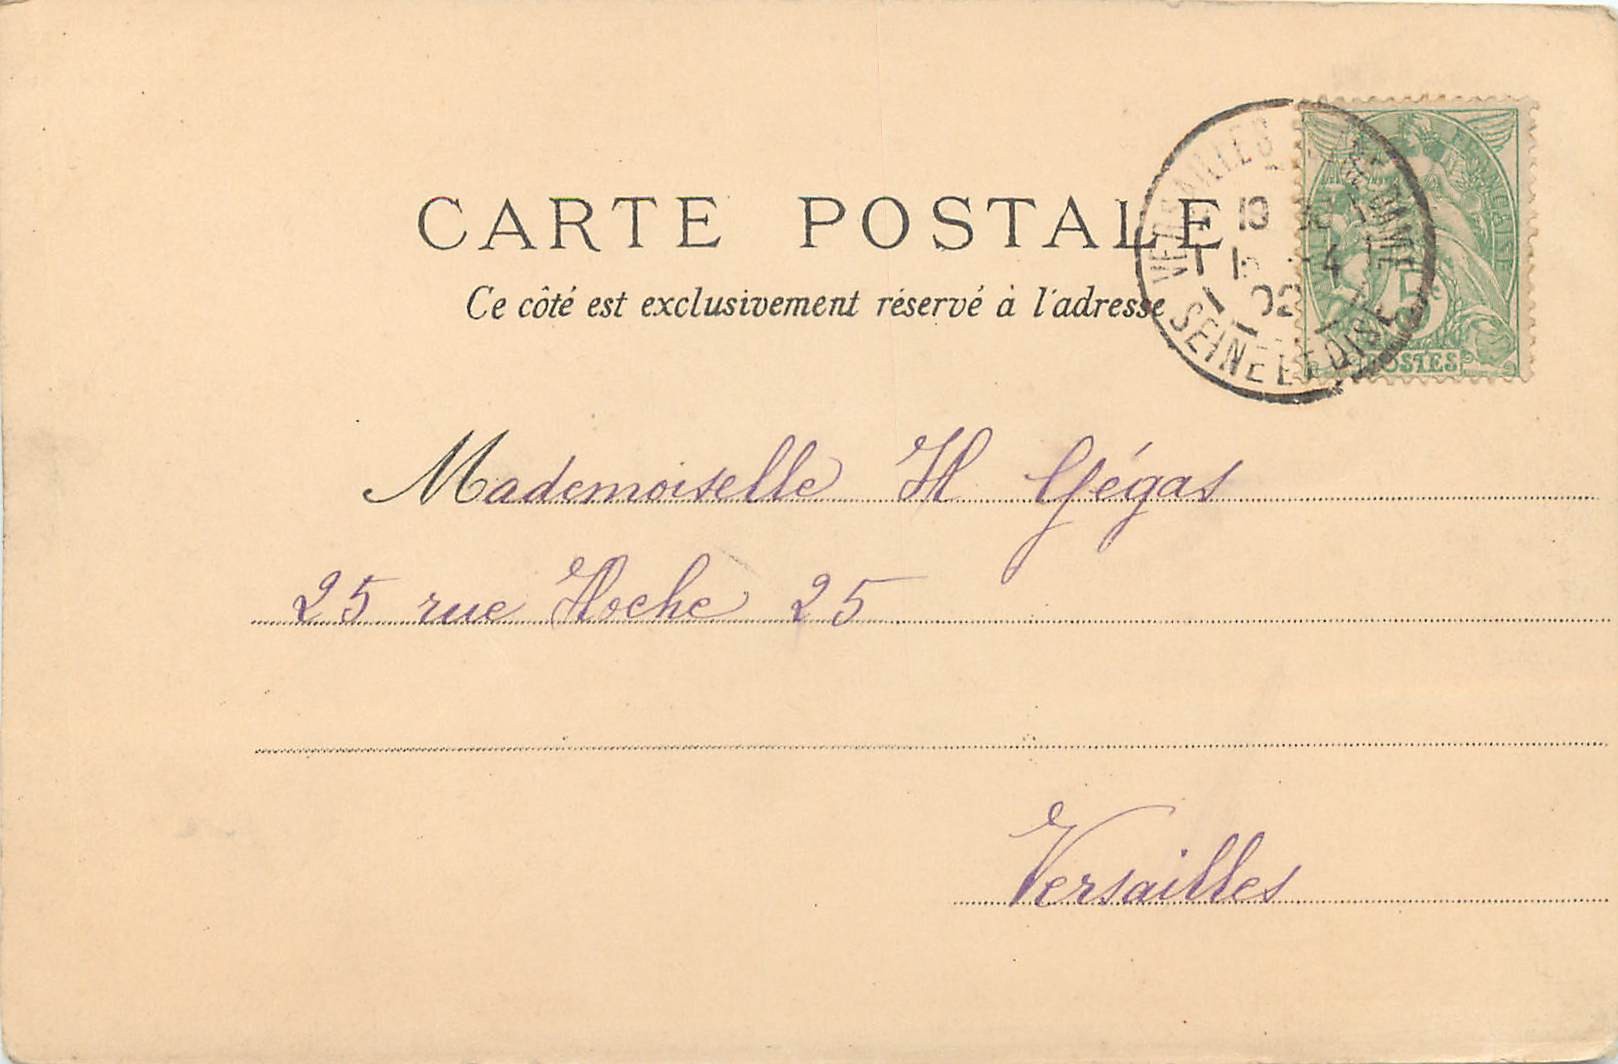 CARTE POSTALE
Ce côté est exclusivement réservé à l'adresse
VERSAILLES
02
SEINE ET OISE
5c
POSTES
Mademoiselle H Gégas
25 rue Hoche 25
Versailles